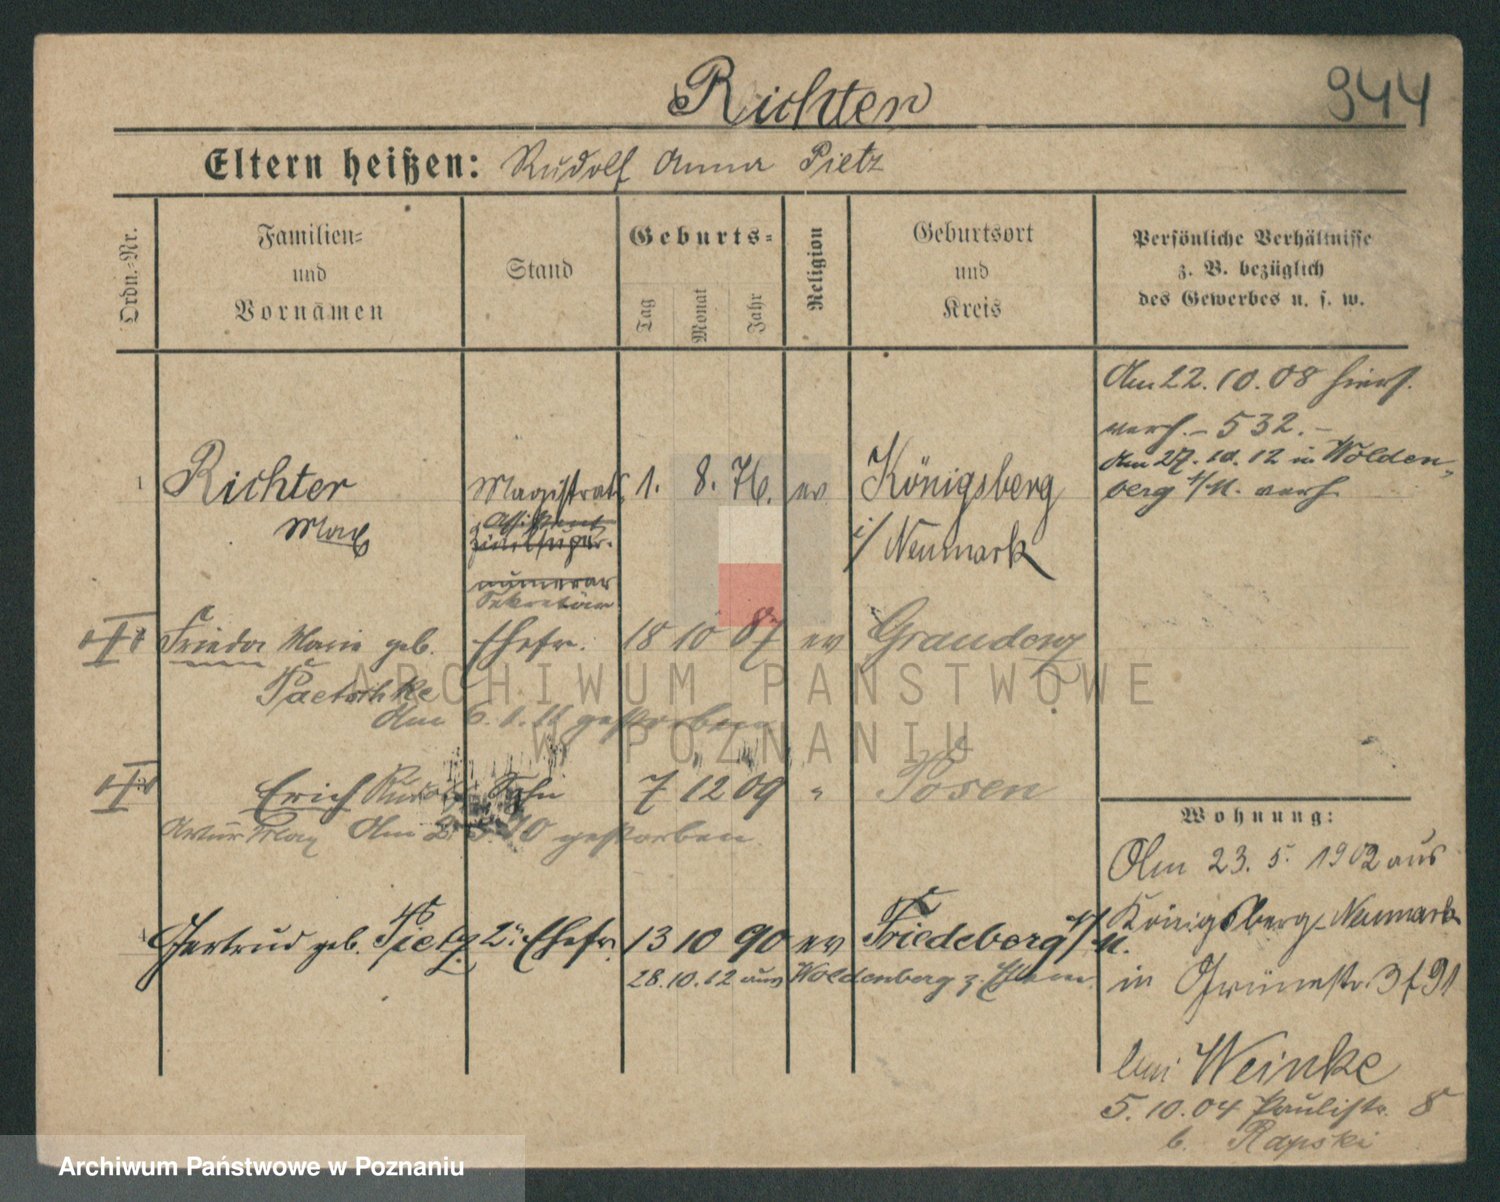 Richter
944
Eltern heißen: Rudolf Anna Pietz
Ordn.-Nr.
Familien-
und
Vornamen
Stand
Geburts-
Tag
Monat
Jahr
Religion
Geburtsort
und
Kreis
Persönliche Verhältnisse
z. B. bezüglich
des Gewerbes u. s. w.
Am 22.10.08 hiers.
verh. - 532. -
Am 27. 10. 12 in Wolden-
berg N/M. verh.
1 Richter Magistrats 1. 8. 76. ev Königsberg
Max
Assistent
i/ Neumark
Zivilsuper-
numerar
Sekretär
Frieda Marie geb. Ehefr. 18 10 87 ev Graudenz
Paetschke
Am 6. 1. 11 gestorben
Erich Rudolf Sohn 7 12 09 " Posen
Artur Max Am 2. 3. 10 gestorben
Gertrud geb. Pietz 2. Ehefr. 13 10 90 ev Friedeberg N/M.
28.10.12 aus Woldenberg z. Ehem.
Wohnung:
Am 23. 5. 1902 aus
Königsberg-Neumark
in Grünestr. 3 f 91
bei Weinke
5.10.04 Paulistr. 8
b. Rapski
ARCHIWUM PAŃSTWOWE
W POZNANIU
Archiwum Państwowe w Poznaniu